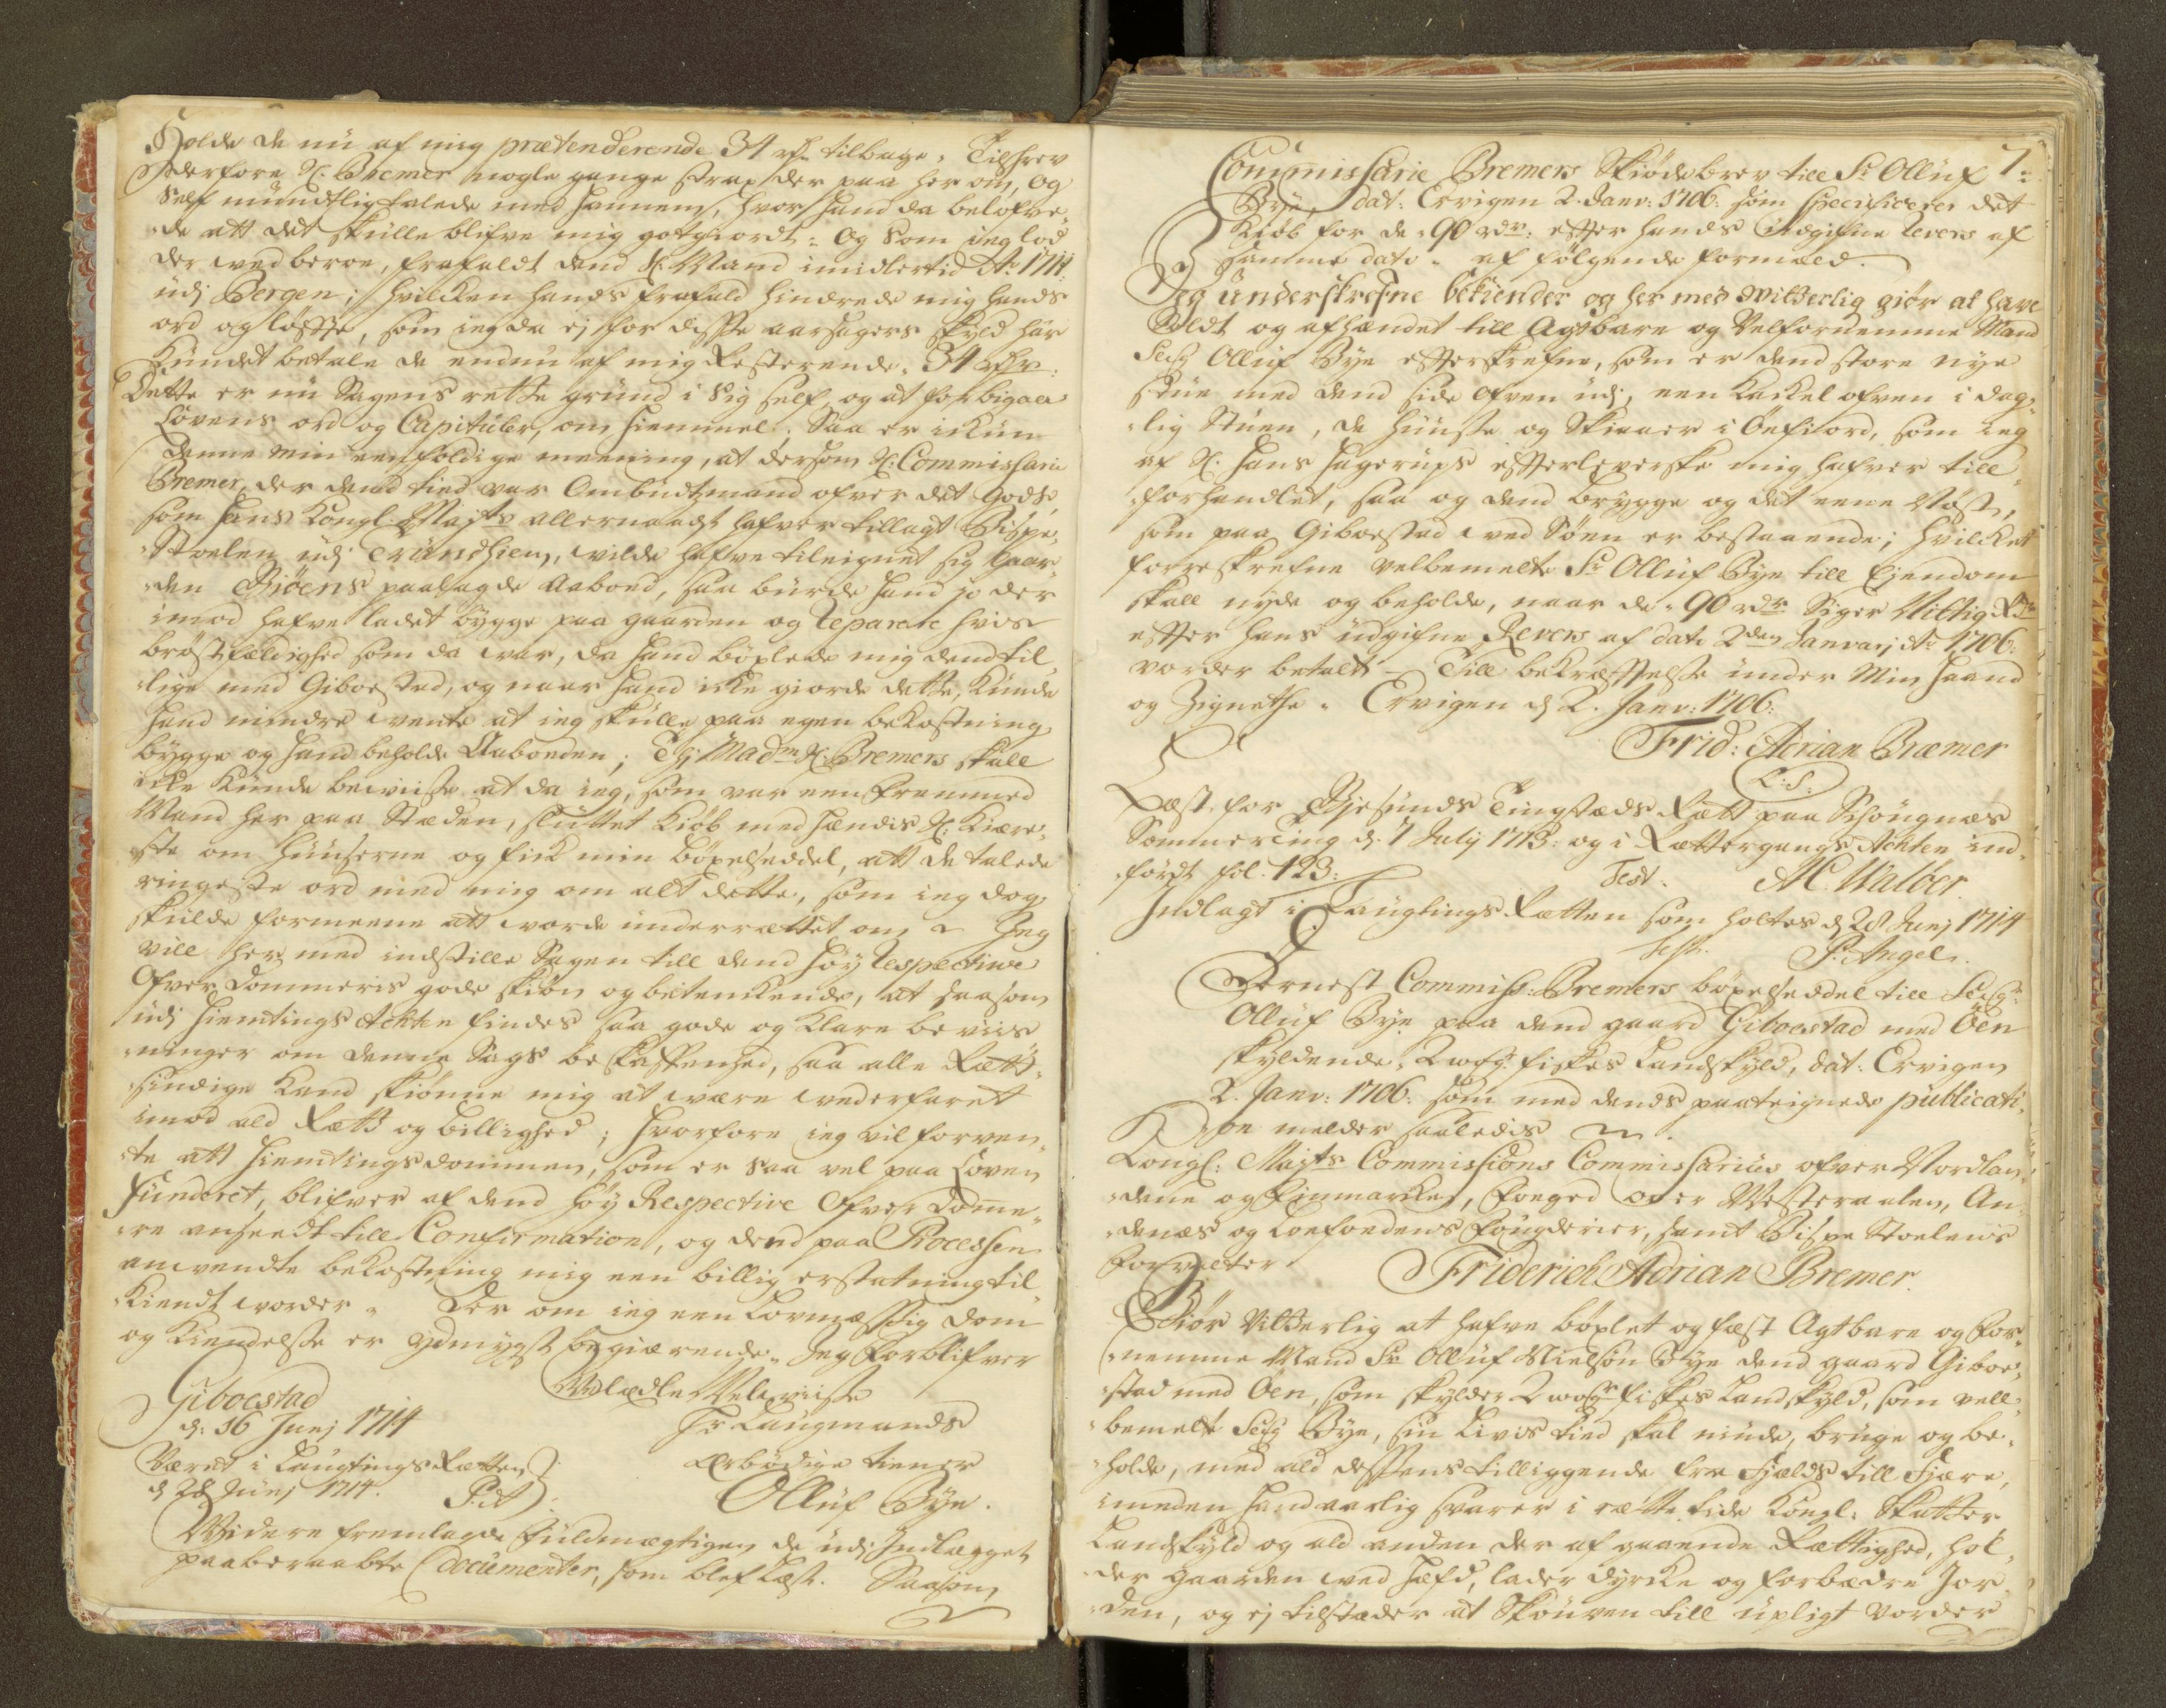 Holde de nu af mig prætenderende 34 rdr tilbage, Tilskrev
derfore H: Bremer nogle gange strax der paa her om, og
Self mundtlig talede med hannem, hvor hand da belofve-
de att det skulle blifve mig gotgiordt: og som ieg lod
der ved beroe, frafaldt dend Sl: Mand imidlertid Ao 1711
udj Bergen; hvilcken hands frafald hindrede mig hands
ord og løfte, som ieg da ej for disse aarsagers skyld har
kundet betale de endnu af mig Resterende 34 rdr:
Dette er nu Sagens rette grund i sig self, og at forbigaa
Lovens ord og Capituler, om hiemmel; Saa er ickun
denne min eenfoldige meening, at dersom Sl: Commissarie
Bremer, der dend tied var Ombudtzmand ofver det Gods,
som Hans Kongl: Majts allernaadst hafver tillagt Bispe-
Stoelen udj Trundhiem, vilde hafve tileignet sig Gaar-
den Biöens paalagde Aaboed, saa burde hand jo der
imod hafve ladet bygge paa gaarden og Reparere hvis
bröstfældighed som da var, da hand böxlede mig dend til-
lige med Giboestad, og naar hand icke giorde dette, kunde
hand mindre vente at ieg skulle paa egen bekostning
bygge og hand beholde Aaboeden; Thj Madme Sl: Bremers skall
icke kunde beviise at da ieg, som var een fremmed
Mand her paa Stæden, sluttet kiöb med hendis Sl: Kiære-
ste om huuserne og fick min böxelseddel, att de talede
ringeste ord med mig om alt dette, som ieg dog
skulde formeene att vorde underrættet om. Jeg
vill her med indstille Sagen till dend höy Respective
Ofver Dommeris gode skiön og betenckende, at saasom
udj Hiemtings Ackten findes saa gode og klare beviis-
ninger om denne Sags beskaffenhed, saa alle Rætt-
sindige kand skiönne mig at være vederfaret
imod ald Rætt og billighed; hvorfore ieg vil forven-
te att Hiemtings dommen, som er saa vel paa Loven
funderet, blifver af dend höy Respective Ofver Domme-
re anseedt till Confirmation, og dend paa Processen
anvendte bekostning mig een billig erstatning til-
kiendt vorder. Der om ieg een Lovmæssig dom
og kiendelse er ydmygst begiærende. Jeg forblifver
Velædle Velviise
Giboestad
Hr Laugmands
d: 16 Junj 1714
Været i Laugtings Retten
ærbödige tiener
d 28 Junj 1714. P: A
Olluf Bye.
Videre fremlagde Fuldmægtigen de udj Indlægget
paaberaabte Documenter, som blef Læst. Saasom
7:
Commissarie Bremers Skiödebrev till Sr Olluf
Bye, dat: Ervigen 2. Janv: 1706. som specificerer det
kiöb for de 90 rdr: effter hands udgifne Revers af
samme dato. af fölgende formæld.
Jeg Underskrefne bekiender og her med vitterlig giör at have
soldt og afhændet till Agtbare og Velfornemme Mand
Seigr Olluf Bye effterskrefne, som er dend store nye
stue med dend side ofven udj, een Kackelofven i dag-
lig Stuen, de huuse og Skiaaer i Öefiord, som ieg
af Sl: Hans Hagerups effterleverske mig hafver till-
forhandlet, saa og dend brygge og det eene Nöst,
som paa Giboestad ved Söen er bestaaende; hvilcket
forreskrefne velbemelte Sr Olluf Bye till Eiendom
skall nyde og beholde, naar de 90 rdr siger Nittig Rdr
effter hans udgifne Revers af dato 2den Janvarj Ao 1706.
vorder betalt. Till bekræfftelse under Min Haand
og Zignethe. Ervigen d 2. Janv: 1706:
Frid: Adrian Bræmer
L: S:
Læst for Gjesunds Tingstæds Rætt paa Schougnæs
Sommerting d: 7 Julij 1713: og i Rættergangs Ackten ind-
fördt fol. 123:
Test. AC. Walber.
Indlagt i Laugtings Rætten som holtes d 28 Junj 1714
Test. P: Angel.
Dernest Commiss: Bremers böxelseddel till Seigr
Olluf Bye paa dend gaard Giboestad med Öen
skyldende 2 vog: fiskes Landskyld, dat: Ervigen
2. Janv: 1706. som med dends paateignede publicati-
on melder saaledis
Kongl: Majts Commissions Commissarius ofver Nordlan-
dene og Finmarcken, foeged over Westeraalen, An-
denæs og Loefoedens Fougderier, samt Bispe Stoelens
Forvalter Friderich Adrian Bremer.
Giör Vitterlig at hafve böxlet og fæst Agtbare og For-
nemme Mand Sr Olluf Nielsön Bye dend gaard Giboe-
stad med Öen, som skylder 2 vogr fiskes Landskyld, som vell-
bemelte Seigr Bye, sin Livs tied skal niude, bruge og be-
holde, med ald dessens tilliggende fra Fiælds till Fiære,
imeden hand aarlig svarer i rætte tide Kongl: Skatter
Landskyld og ald anden der af gaaende Rættighed, hol-
der gaarden ved Hæfd, lader dyrcke og forbædre Jor-
den, og ej tilstæder at Skouven till upligt vorder